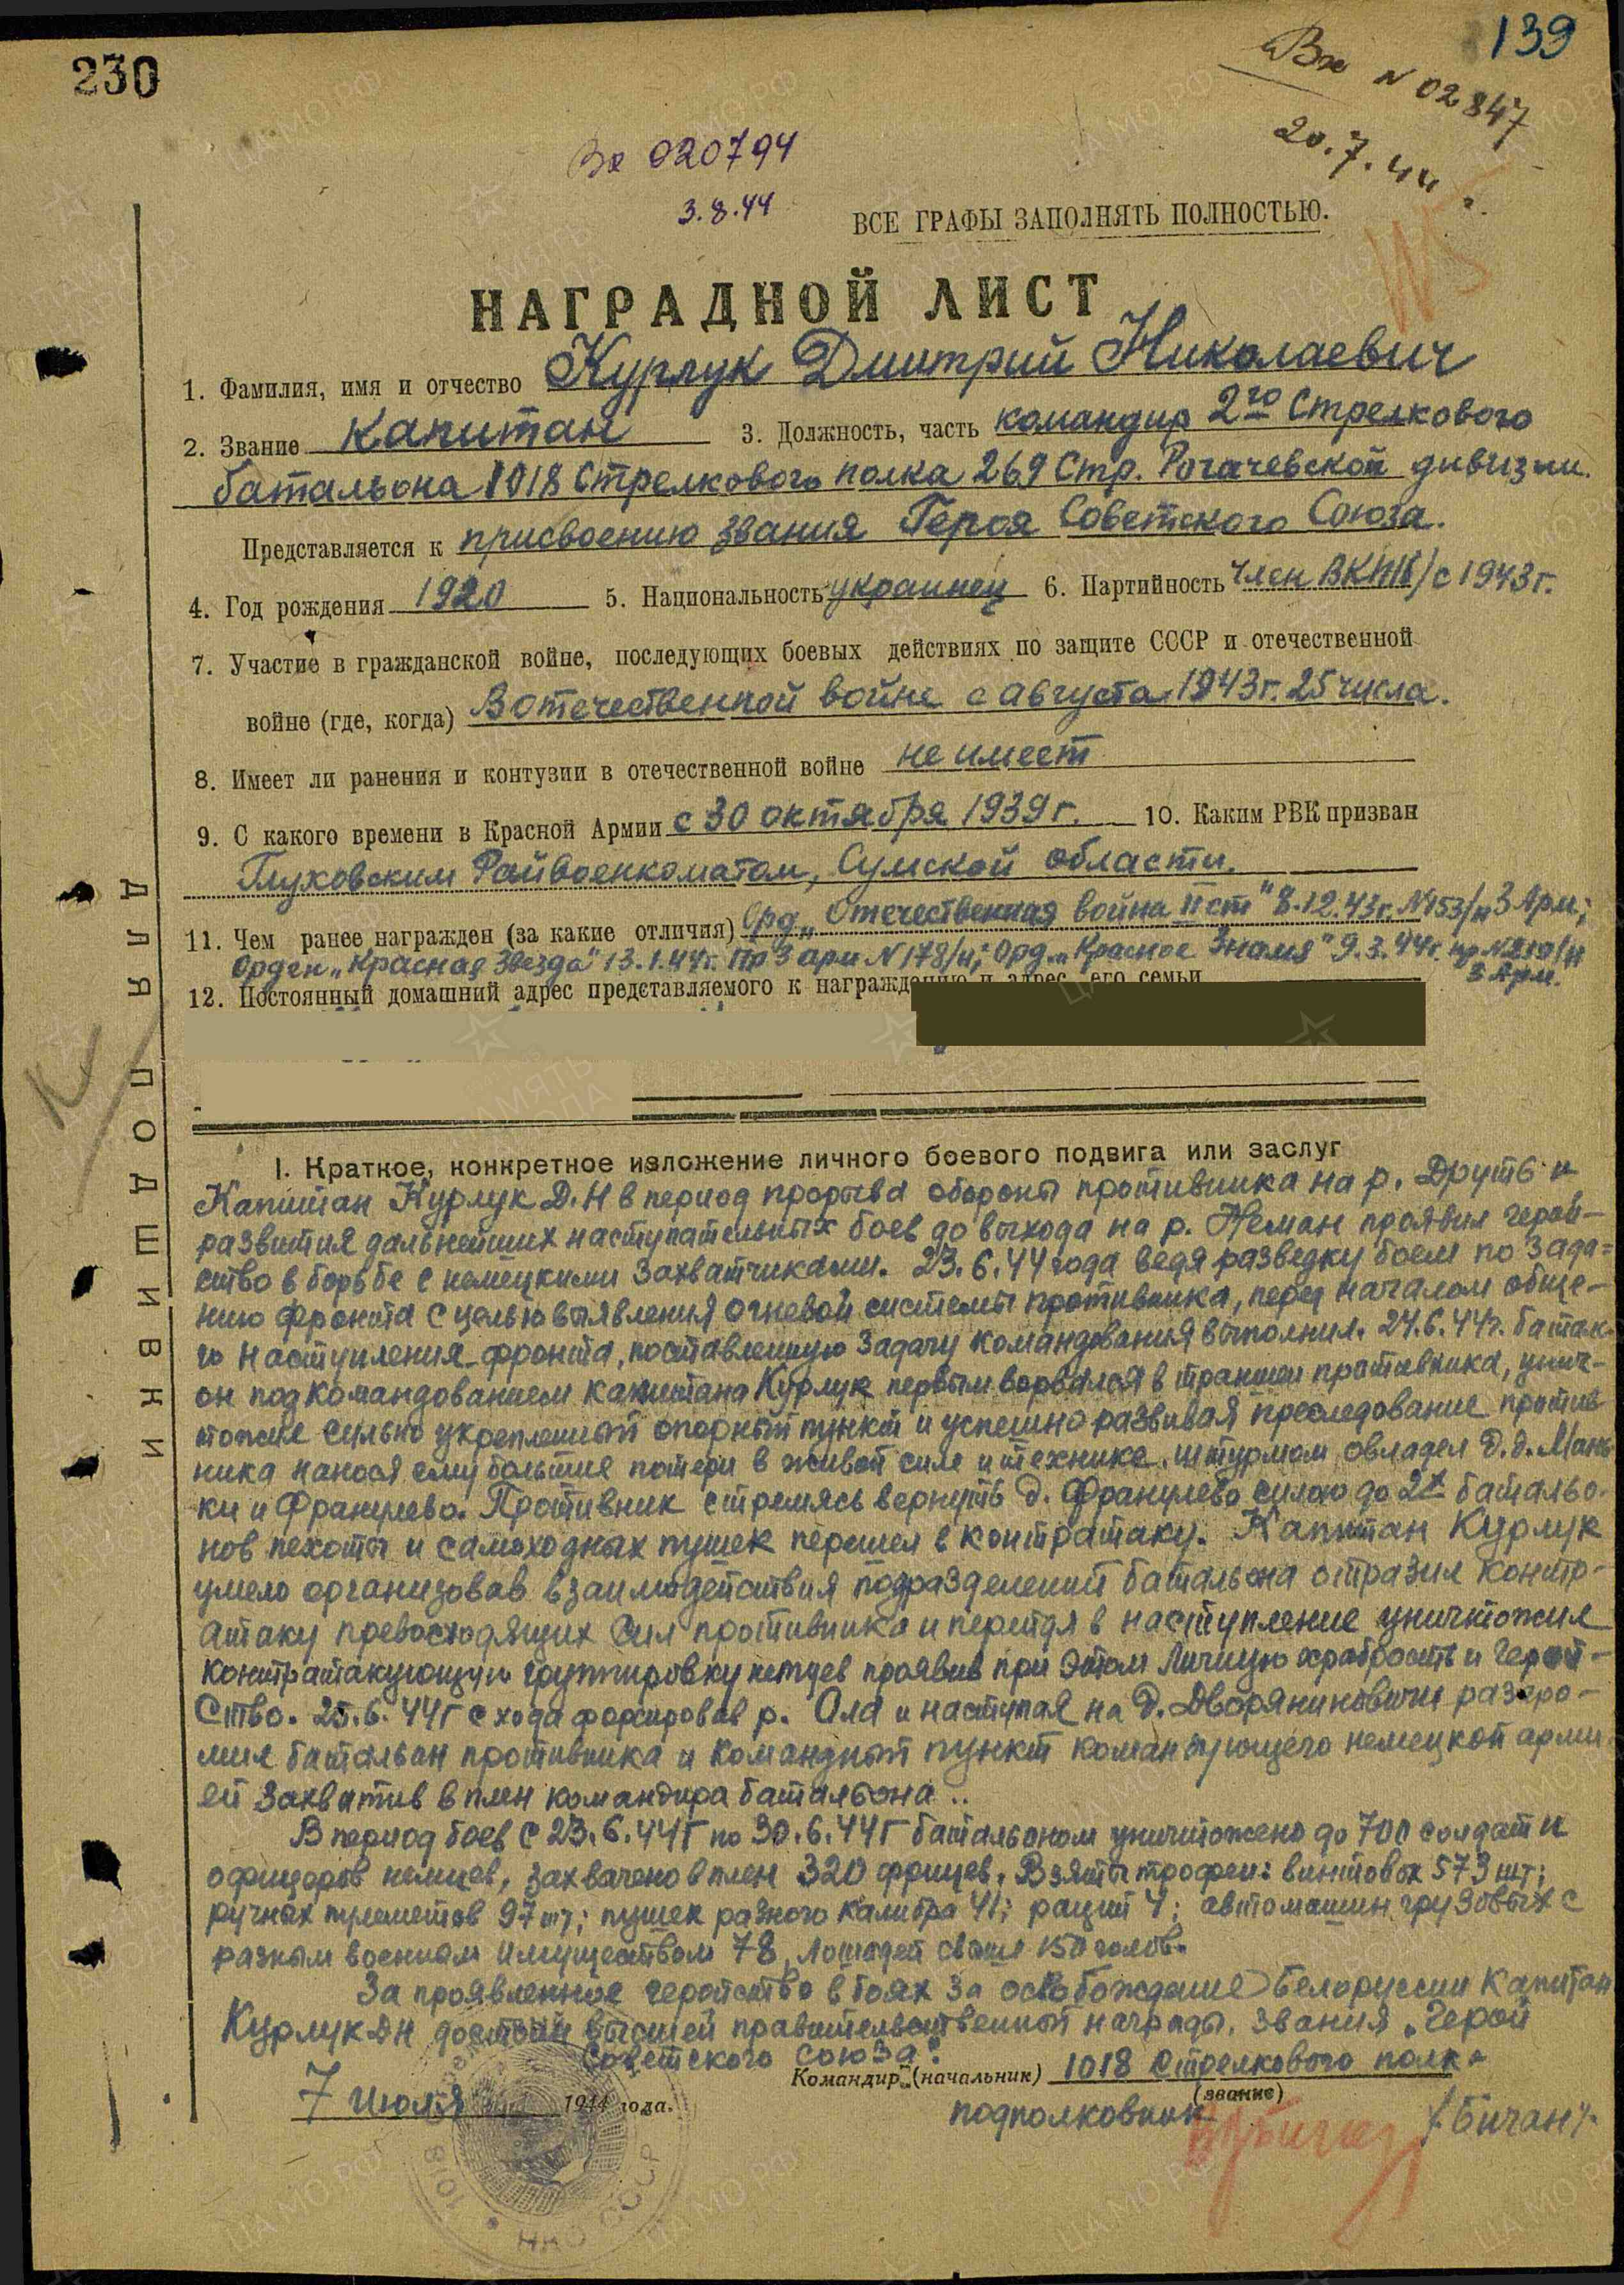 230
139
Вх N 02847
20.7.44.
Вх 020794
3.8.44
ВСЕ ГРАФЫ ЗАПОЛНЯТЬ ПОЛНОСТЬЮ.
НАГРАДНОЙ ЛИСТ
1. Фамилия, имя и отчество Курлук Дмитрий Николаевич
2. Звание Капитан 3. Должность, часть командир 2го Стрелкового
батальона 1018 Стрелкового полка 269 Стр. Рогачевской дивизии.
Представляется к присвоению звания Героя Советского Союза.
4. Год рождения 1920 5. Национальность украинец 6. Партийность член ВКП/б/ с 1943г.
7. Участие в гражданской войне, последующих боевых действиях по защите СССР и отечественной
войне (где, когда) В отечественной войне с августа 1943г. 25 числа.
8. Имеет ли ранения и контузии в отечественной войне не имеет
9. С какого времени в Красной Армии с 30 октября 1939г. 10. Каким РВК призван
Глуховским Райвоенкоматом, Сумской области.
11. Чем ранее награжден (за какие отличия) Орд. „Отечественная война II ст" 8.12.43г. №153/н 3 Арм;
Орден „Красная Звезда" 13.1.44г. Пр 3 арм N 178/н; Орд. „Красное Знамя" 9.3.44г. пр. N219/н
3 Арм.
12. Постоянный домашний адрес представляемого к награждению и адрес его семьи
ДЛЯ ПОДШИВКИ
1. Краткое, конкретное изложение личного боевого подвига или заслуг
Капитан Курлук Д.Н в период прорыва обороны противника на р. Друть и
развития дальнейших наступательных боев до выхода на р. Неман проявил герой-
ство в борьбе с немецкими захватчиками. 23.6.44 года ведя разведку боем по зада=
нию фронта с целью выявления огневой системы противника, перед началом обще-
го наступления фронта, поставленную задачу командования выполнил. 24.6.44г. батальон
он под командованием капитана Курлук первым ворвался в траншеи противника, унич-
тожив сильно укрепленный опорный пункт и успешно развивая преследование против
ника нанося ему большие потери в живой силе и технике, штурмом овладел д.д. Мань
ки и Франулево. Противник стремясь вернуть д. Франулево силою до 2х батальо-
нов пехоты и самоходных пушек перешел в контратаку. Капитан Курлук
умело организовав взаимодействия подразделений батальона отразил контр-
атаку превосходящих сил противника и перейдя в наступление уничтожил
контратакующую группировку немцев проявив при этом личную храбрость и герой-
ство. 25.6.44г с хода форсировав р. Ола и наступая на д. Дворяниновичи разгро-
мил батальон противника и командный пункт командующего немецкой арми
ей захватив в плен командира батальона..
В период боев с 23.6.44г по 30.6.44г батальоном уничтожено до 700 солдат и
офицеров немцев, захвачено в плен 320 фрицев. Взяты трофеи: винтовок 573 шт;
ручных пулеметов 97 шт; пушек разного калибра 41; раций 4; автомашин грузовых с
разным военным имуществом 78, лошадей свыше 150 голов.
За проявленное геройство в боях за освобождение Белоруссии Капитан
Курлук ДН достоин высшей правительственной награды, звания „Герой
Советского Союза".
Командир (начальник) 1018 Стрелкового полка
(звание)
7 июля 1944 года.
подполковник /Бичан/.
1018
НКО СССР